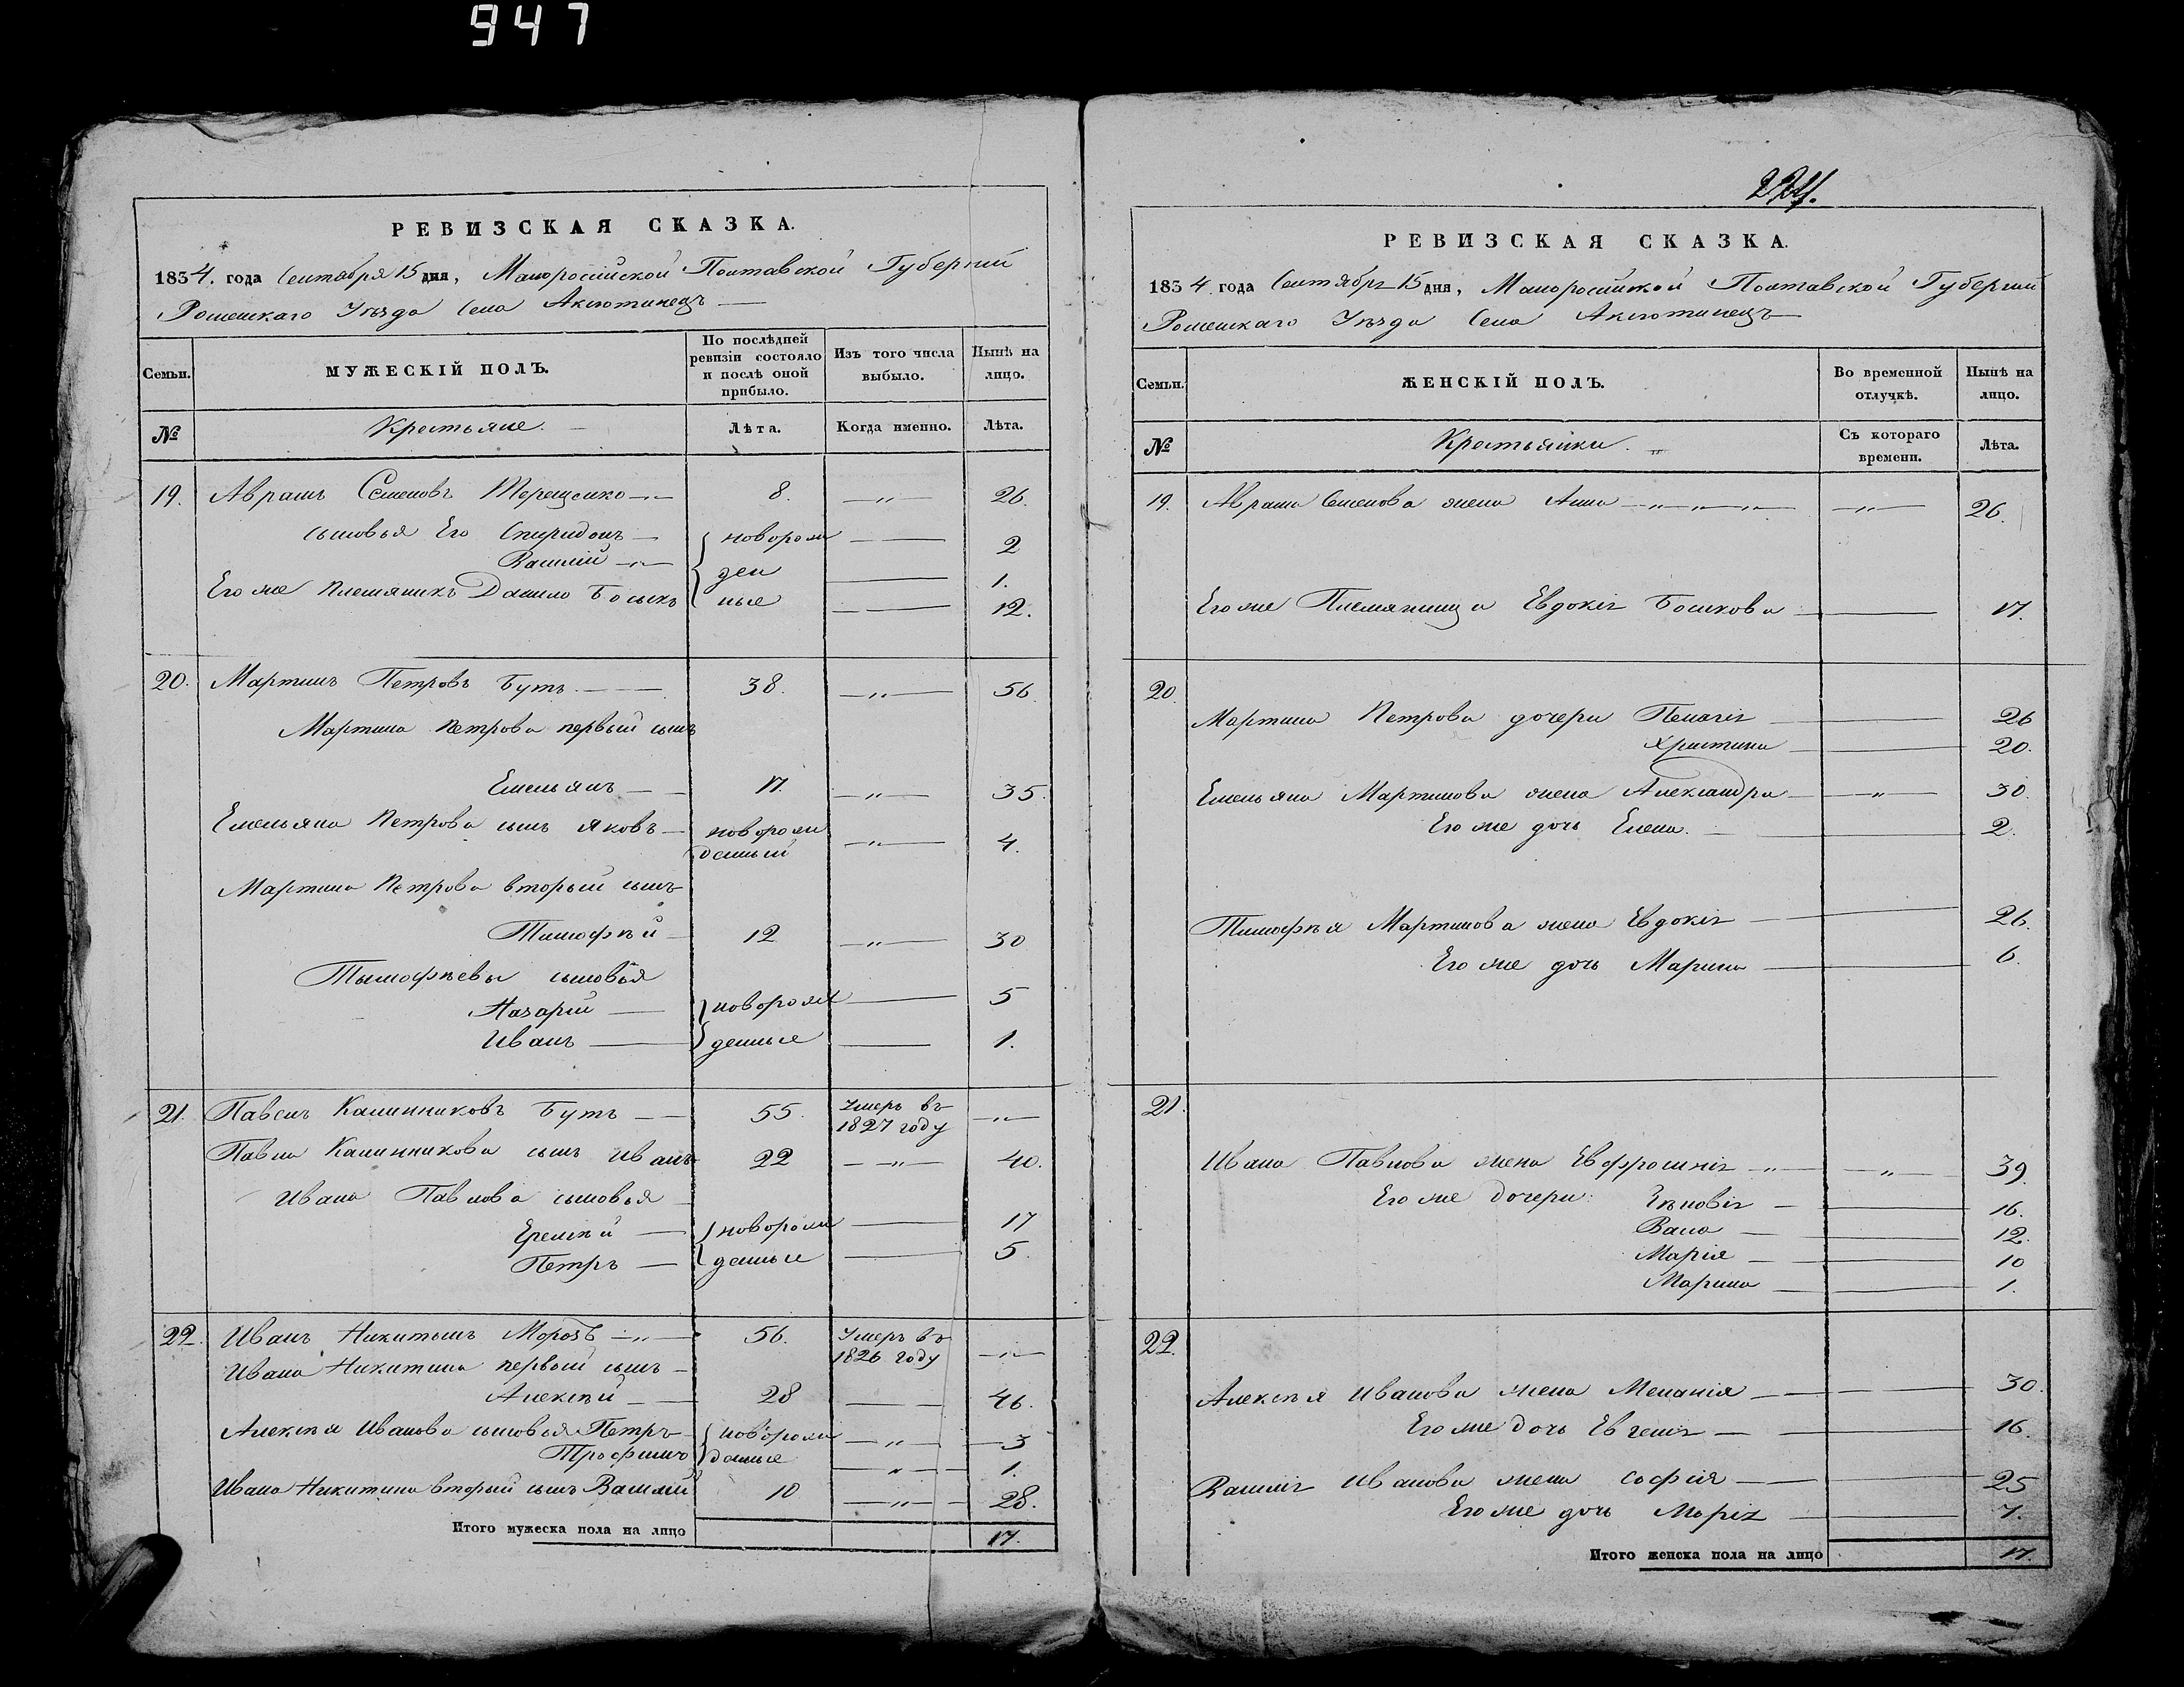 947
РЕВИЗСКАЯ СКАЗКА.
1834. года Сентября 15 дня, Малоросійской Полтавской Губерній
Роменскаго Уѣзда Села Аксютинецъ
Семьи.
МУЖЕСКІЙ ПОЛЪ.
По послѣдней ревизіи состояло и послѣ оной прибыло.
Изъ того числа выбыло.
Нынѣ на лицо.
№
Крестьяне.
Лѣта.
Когда именно.
Лѣта.
19. Аврамъ Семеновъ Терещенко 8. 26.
сыновья Его Спиридонъ новорож 2
Василій ден 1.
Его же племяникъ Данило ные 12.
20. Мартинъ Петровъ Бутъ. 38. 56
Мартина Петрова первый сынъ
Емельянъ 17. 35.
Емельяна Петрова сынъ Яковъ новорожденный 4.
Мартина Петрова вторый сынъ
Тимофѣй 12 30
Тымофѣевы сыновья
Назарій новорож 5
Иванъ денные 1.
21. Павелъ Калинниковъ Бутъ 55. Умеръ въ 1827 году
Павла Калинникова сынъ Иванъ 22 40.
Ивана Павлова сыновья
Еремѣй новорож 17
Петръ денные 5.
22. Иванъ Никитинъ Морозъ 56. Умеръ въ 1826 году
Ивана Никитина первый сынъ
Алексѣй 28 46.
Алексѣя Иванова сыновья Петръ новорож 3
Трофимъ денные 1.
Ивана Никитина вторый сынъ Василій 10 28.
Итого мужеска пола на лицо 17.
РЕВИЗСКАЯ СКАЗКА.
1834 года Сентября 15 дня, Малоросійской Полтавской Губерній
Роменскаго Уѣзда Села Аксютинецъ
Семьи.
ЖЕНСКІЙ ПОЛЪ.
Во временной отлучкѣ.
Нынѣ на лицо.
№
Крестьянки.
Съ котораго времени.
Лѣта.
19. Аврама Семенова жена Анна 26.
Его же Племяница Евдокія Бошкова 17.
20
Мартина Петрова дочери Пелагія 26
Христина 20.
Емельяна Мартинова жена Александра 30.
Его же дочь Елена. 2.
Тимофѣя Мартинова жена Евдокія 26.
Его же дочь Марина 6.
21.
Ивана Павлова жена Евфросинія 39.
Его же дочери: 16.
12.
Марія 10
Марина 1.
22.
Алексѣя Иванова жена Меланія 30.
Его же дочь Евгенія 16.
Василія Иванова жена Софія 25
Его же дочь Марія 7.
Итого женска пола на лицо 17.